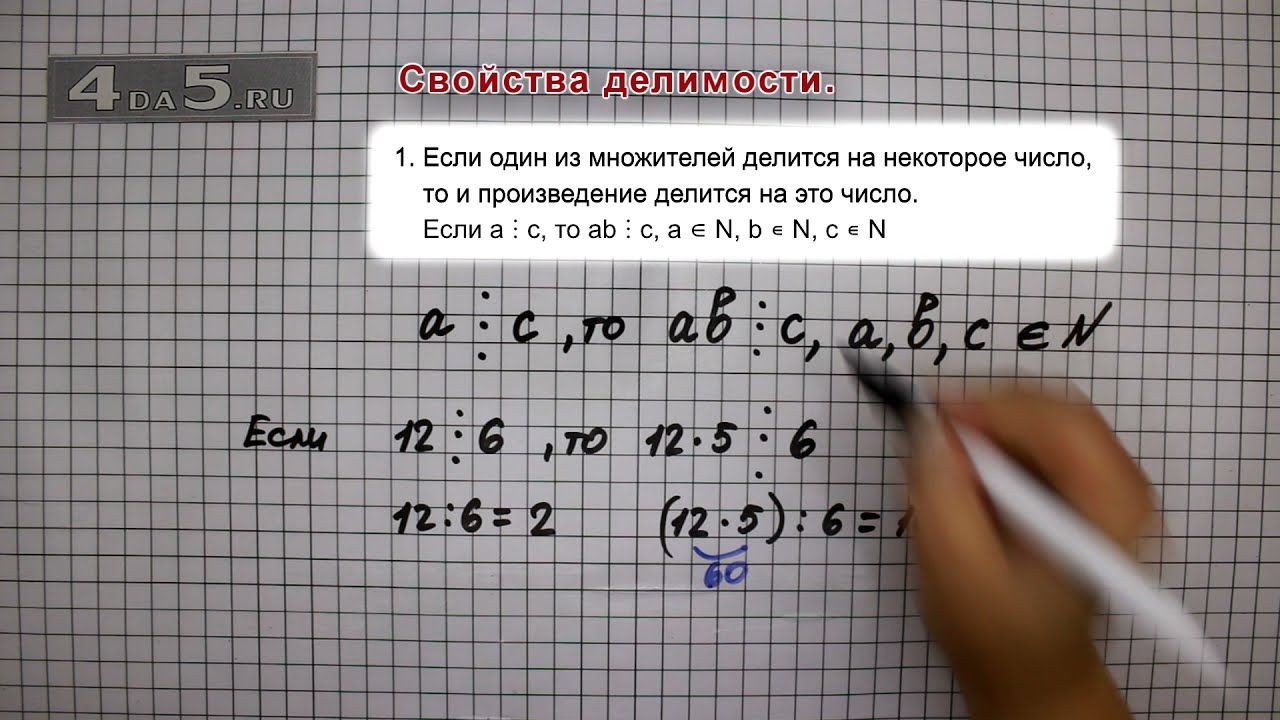 4DA5.RU
Свойства делимости.
1. Если один из множителей делится на некоторое число,
то и произведение делится на это число.
Если a ⋮ c, то ab ⋮ c, a ∈ N, b ∈ N, c ∈ N
a ⋮ c, то ab ⋮ c, a, b, c ∈ N
Если 12 ⋮ 6, то 12·5 ⋮ 6
12:6=2 (12·5):6=1
60